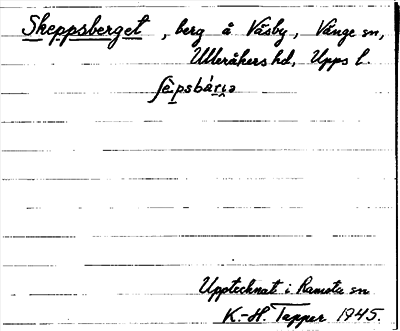 Skeppsberget, berg å Väsby, Vänge sn,
Ulleråkers hd, Upps l.
ʃèpsbárɩ̯ə
Upptecknat i Ramsta sn
K.-H. Tapper 1945.